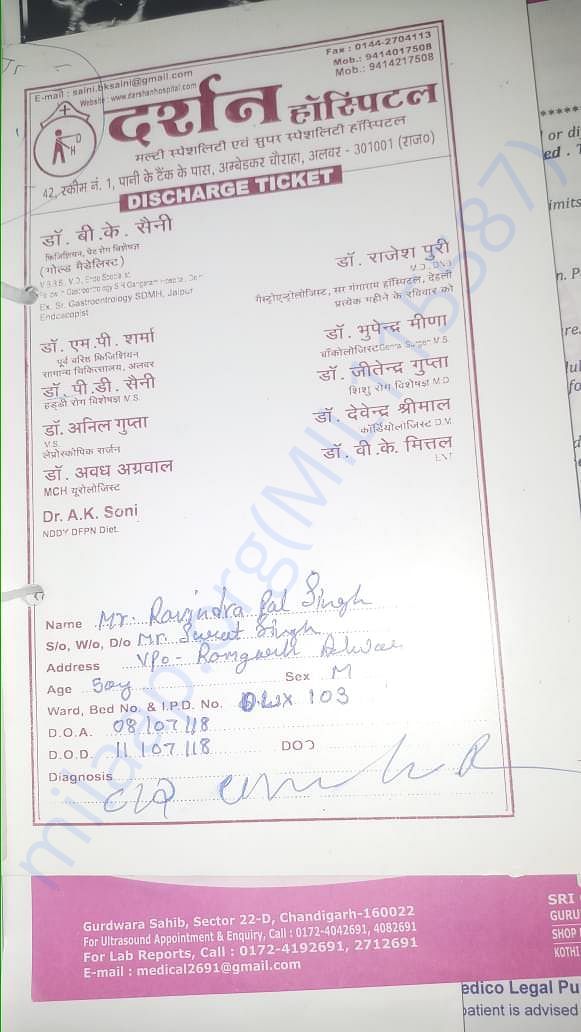 Fax : 0144-2704113
Mob.: 9414017508
Mob.: 9414217508
E-mail : saini.bksaini@gmail.com
Website : www.darshanhospital.com
D
H
दर्शन हॉस्पिटल
मल्टी स्पेशलिटी एवं सुपर स्पेशलिटी हॉस्पिटल
42, स्कीम नं. 1, पानी के टैंक के पास, अम्बेडकर चौराहा, अलवर - 301001 (राज०)
DISCHARGE TICKET
डॉ. बी.के. सैनी
फिजिशियन, पेट रोग विशेषज्ञ
(गोल्ड मैडेलिस्ट)
Ex. Sr. Gastroentrology SDMH, Jaipur
Endoscopist
डॉ. राजेश पुरी
गैस्ट्रोएन्ट्रोलोजिस्ट, सर गंगाराम हॉस्पिटल, देहली
प्रत्येक महीने के रविवार को
डॉ. एम.पी. शर्मा
पूर्व वरिष्ठ फिजिशियन
सामान्य चिकित्सालय, अलवर
डॉ. भुपेन्द्र मीणा
डॉ. पी.डी. सैनी
हड्डी रोग विशेषज्ञ M.S.
डॉ. जीतेन्द्र गुप्ता
शिशु रोग विशेषज्ञ M.D.
डॉ. अनिल गुप्ता
M.S.
लेप्रोस्कोपिक सर्जन
डॉ. देवेन्द्र श्रीमाल
कॉर्डियोलाजिस्ट D.M.
डॉ. अवध अग्रवाल
MCH यूरोलोजिस्ट
डॉ. वी.के. मित्तल
ENT
Dr. A.K. Soni
NDDY DFPN Diet.
Name Mr. Ravindra Pal Singh
S/o, W/o, D/o Mr. Surat Singh
Address VPO- Ramgarh Alwar
Age 50y Sex M
Ward, Bed No. & I.P.D. No. DLX 103
D.O.A. 08/07/18
D.O.D. 11/07/18 DOD
Diagnosis
Gurdwara Sahib, Sector 22-D, Chandigarh-160022
For Ultrasound Appointment & Enquiry, Call : 0172-4042691, 4082691
For Lab Reports, Call : 0172-4192691, 2712691
E-mail : medical2691@gmail.com
SRI
GURU
SHOP
KOTHI
edico Legal Pu
patient is advised
or di
ed . T
imits
n. P
re.
fo
milaap.org(MILL115587)